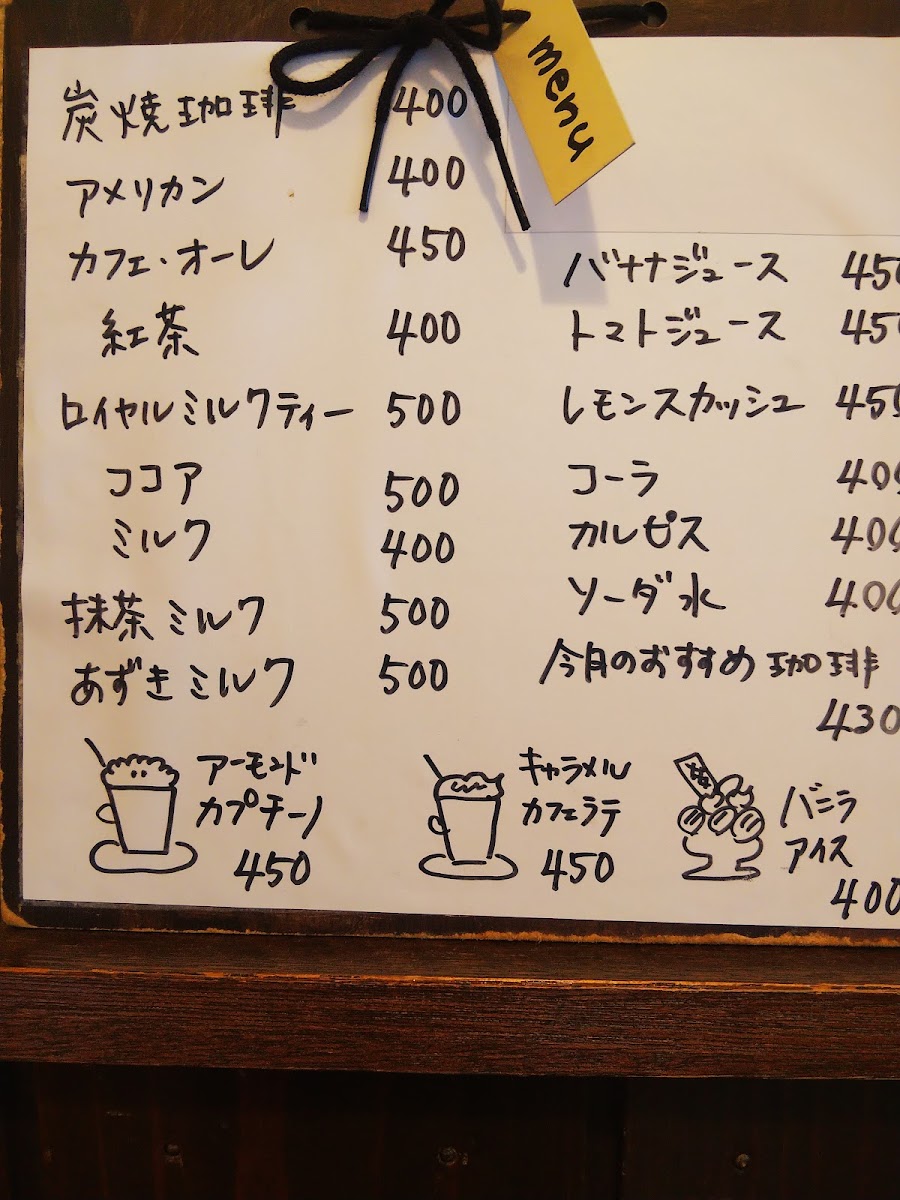 menu
炭焼珈琲 400
アメリカン 400
カフェ・オーレ 450
紅茶 400
ロイヤルミルクティー 500
ココア 500
ミルク 400
抹茶ミルク 500
あずきミルク 500
バナナジュース 450
トマトジュース 450
レモンスカッシュ 450
コーラ 400
カルピス 400
ソーダ水 400
今月のおすすめ珈琲
430
アーモンド
カプチーノ
450
キャラメル
カフェラテ
450
バニラ
アイス
400